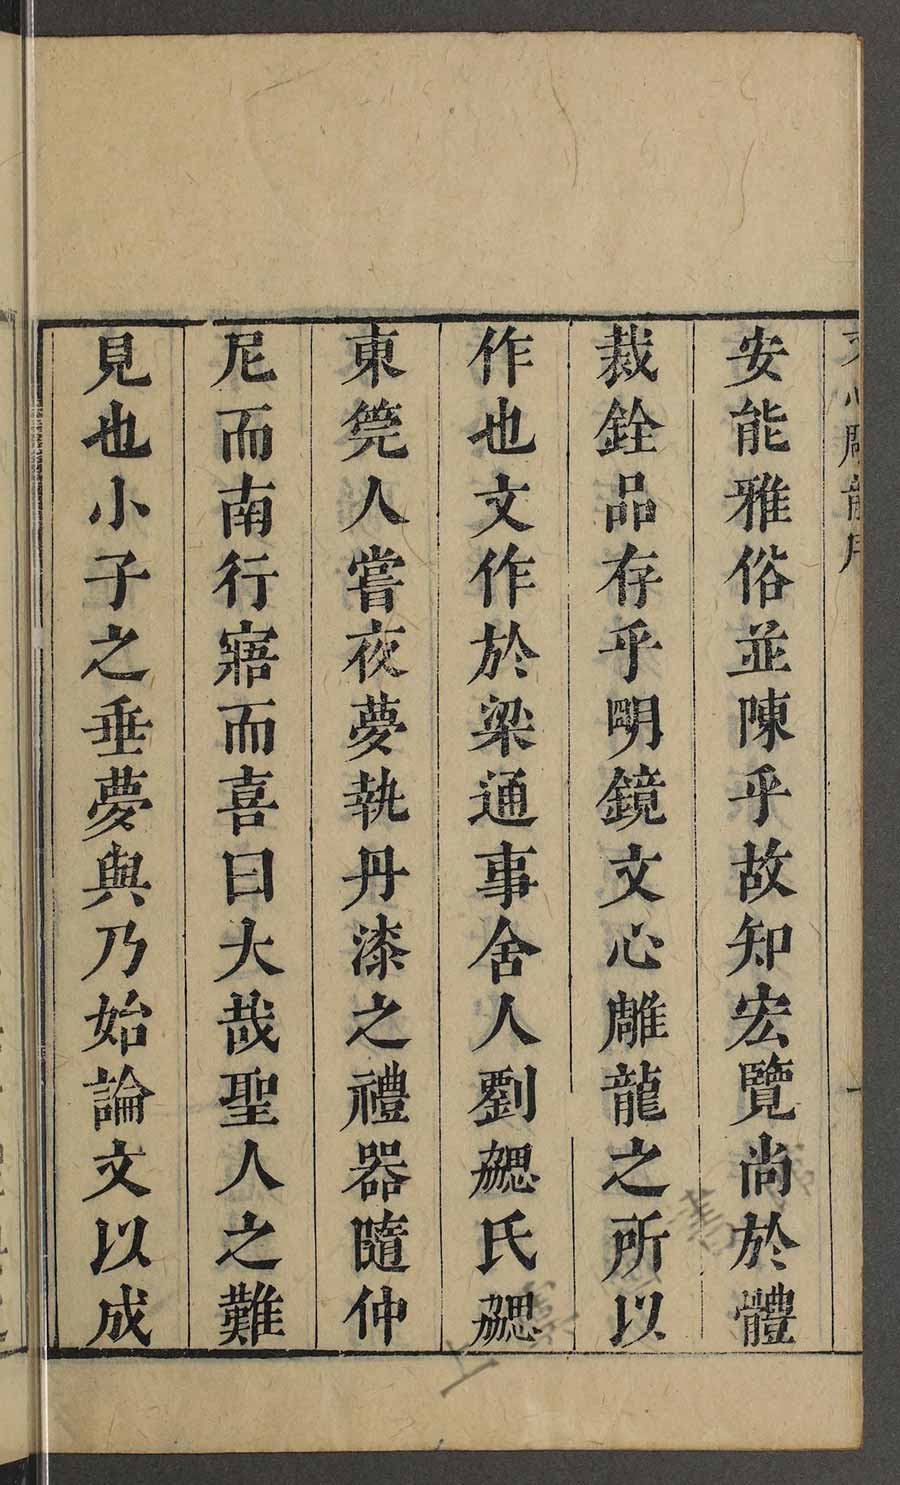 文心雕龍序
安能雅俗並陳乎故知宏覽尚於體
裁銓品存乎明鏡文心雕龍之所以
作也文作於梁通事舍人劉勰氏勰
東筦人嘗夜夢執丹漆之禮器隨仲
尼而南行寤而喜曰大哉聖人之難
見也小子之垂夢與乃始論文以成